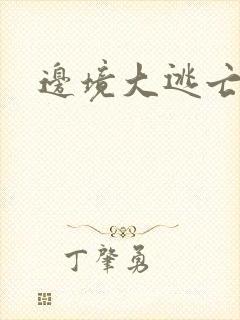 邊境大逃亡
丁肇勇